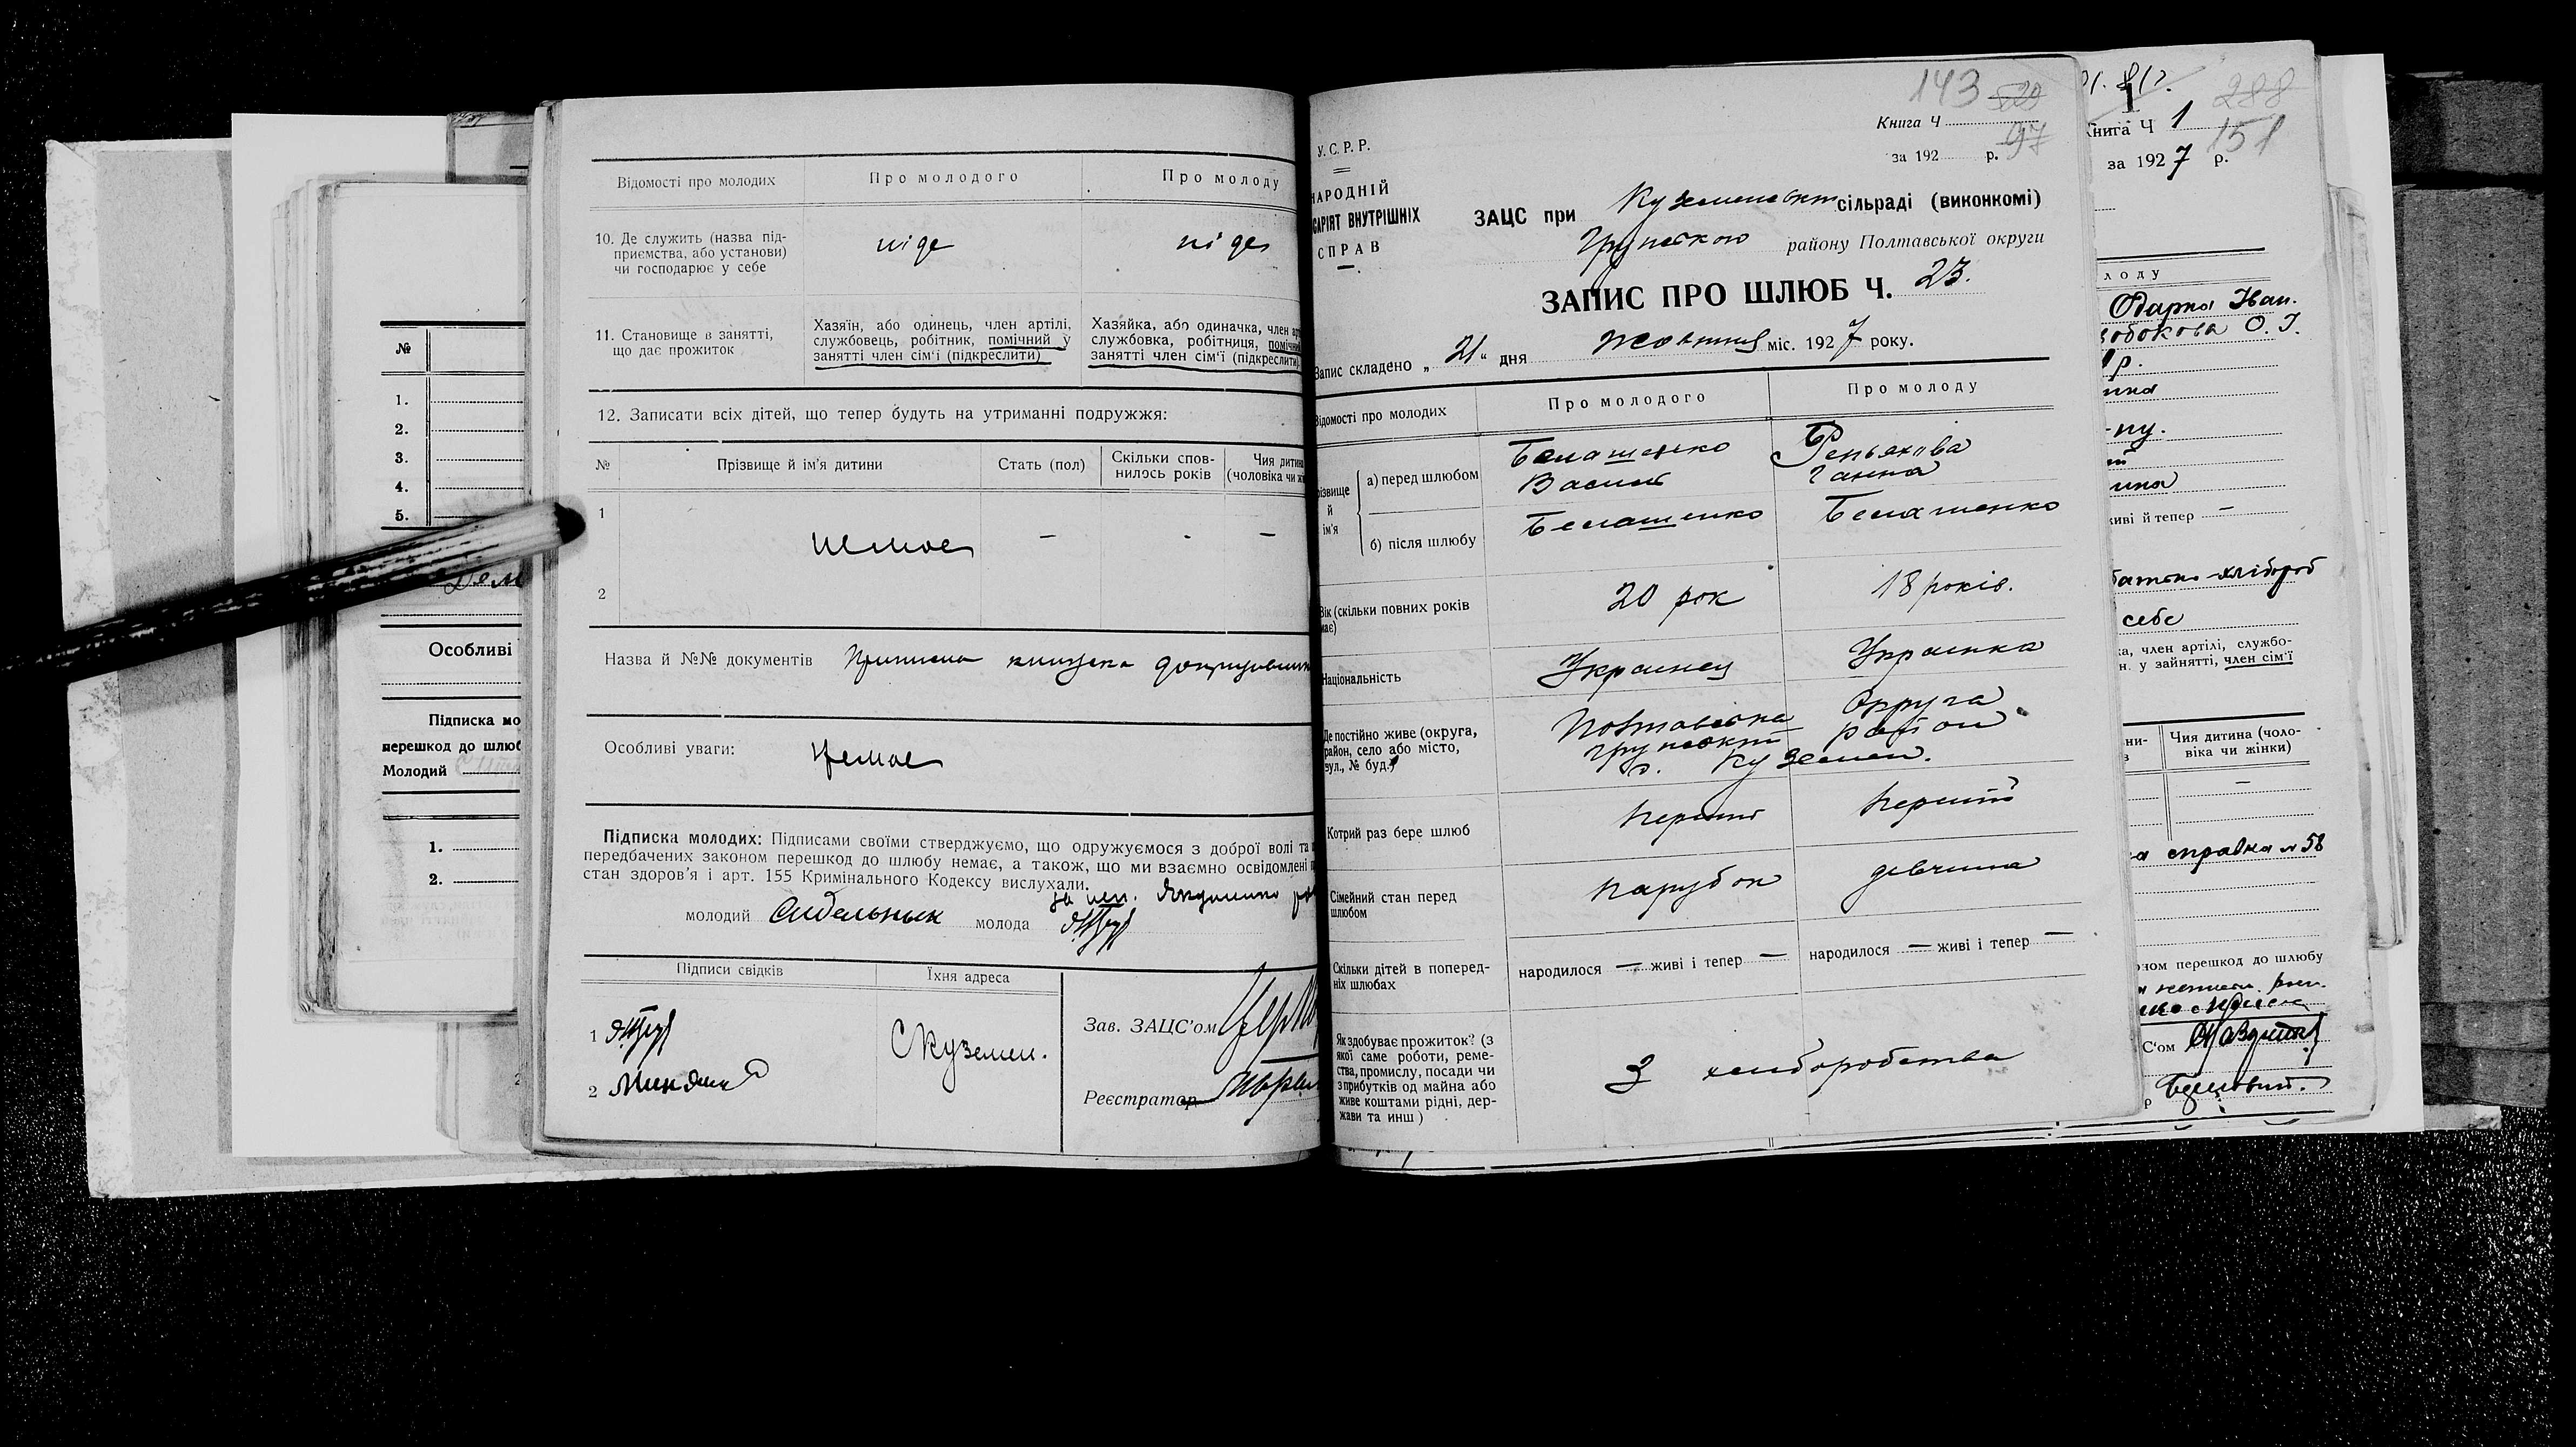 Відомості про молодих
Про молодого
Про молоду
10. Де служить (назва під-
приємства, або установи)
чи господарює у себе
ніде
ніде
11. Становище в занятті,
що дає прожиток
Хазяїн, або одинець, член артілі,
службовець, робітник, помічний у
занятті член сім'ї (підкреслити)
Хазяйка, або одиначка, член
службовка, робітниця,
занятті член сім'ї (підкреслити)
12. Записати всіх дітей, що тепер будуть на утриманні подружжя:
№
Прізвище й ім'я дитини
Стать (пол)
Скільки спов-
нилось років
Чия дитина
(чоловіка чи
1
немає – - –
2
Назва й №№ документів
Особливі уваги: немає
Підписка молодих: Підписами своїми стверджуємо, що одружуємося з доброї волі та
передбачених законом перешкод до шлюбу немає, а також, що ми взаємно освідомлені
стан здоров'я і арт. 155 Кримінального Кодексу вислухали.
молодий Сидельник молода
Підписи свідків
Їхня адреса
1
2
С Куземен.
Зав. ЗАЦС'ом
Реєстратор
№
1.
2.
3.
4.
5.
Особливі
Підписка мо
перешкод до шлюб
Молодий
1.
2.
143
97
У.С.Р.Р.
НАРОДНІЙ
САРІЯТ ВНУТРІШНІХ
СПРАВ
Книга Ч
за 192 р.
ЗАЦС при сільраді (виконкомі)
району Полтавської округи
ЗАПИС ПРО ШЛЮБ Ч. 23.
Запис складено „ 21 " дня жовтня міс. 1927 року.
Відомості про молодих
Про молодого
Про молоду
різвище
й
ім'я
а) перед шлюбом
Белашенко
Василь
Реньяхова
Ганна
б) після шлюбу
Белашенко
Белашенко
Вік (скільки повних років
має)
20 рок
18 років.
Національність
Украинец
Украинка
Де постійно живе (округа,
район, село або місто,
вул., № буд.)
Полтавська Округа
Грунский район
с. Куземен.
Котрий раз бере шлюб
перший
перший
Сімейний стан перед
шлюбом
парубок
девчина
Скільки дітей в поперед-
ніх шлюбах
народилося — живі і тепер —
народилося — живі і тепер —
Як здобуває прожиток? (з
якої саме роботи, реме-
ства, промислу, посади чи
з прибутків од майна або
живе коштами рідні, дер-
жави та инш)
З хлиборобства
288
Книга Ч 1
151
за 1927 р.
лоду
Одарка Іван.
О. І.
р.
живі й тепер —
хлібороб
себе
ка, член артілі, службо-
н. у зайнятті, член сім'ї
Чия дитина (чоло-
віка чи жінки)
–
справка № 58
ном перешкод до шлюбу
С'ом